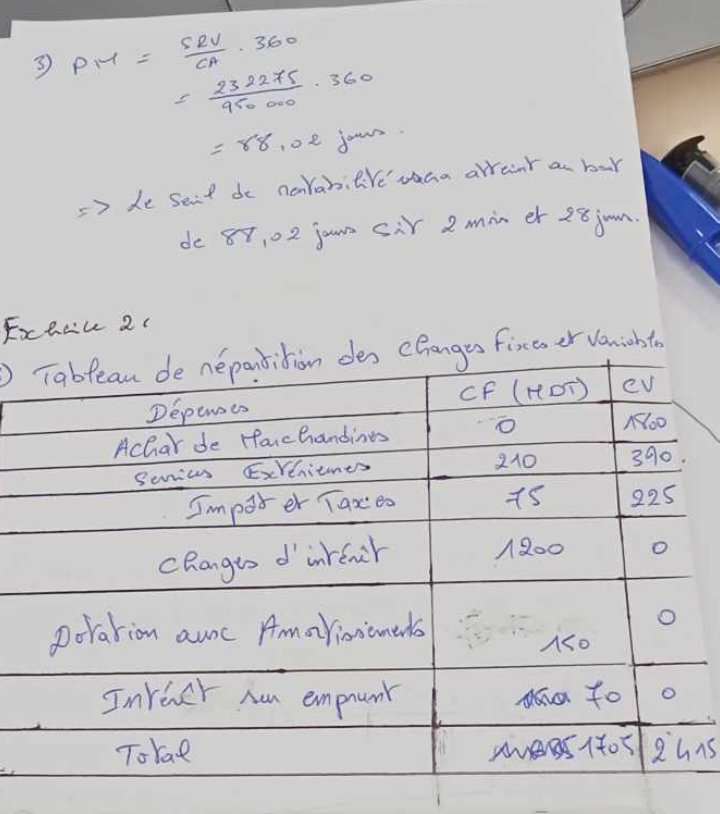 3) PM = SRV/CA . 360
= 232275/950 000 . 360
= 88,02 jours.
=> Le seuil de rentabilité sera atteint au bout
de 88,02 jours Sit 2 mois et 28 jours.
Exercice 2:
Tableau de répartition des charges fixes et Variables
Dépenses CF (MDT) CV
Achat de Marchandises 0 1800
Services Extérieures 210 390.
Impôt et Taxes 75 225
Charges d'intérêt 1200 0
Dotation aux Amortissements 150 0
Intérêt sur emprunt 70 0
Total 1705 2415